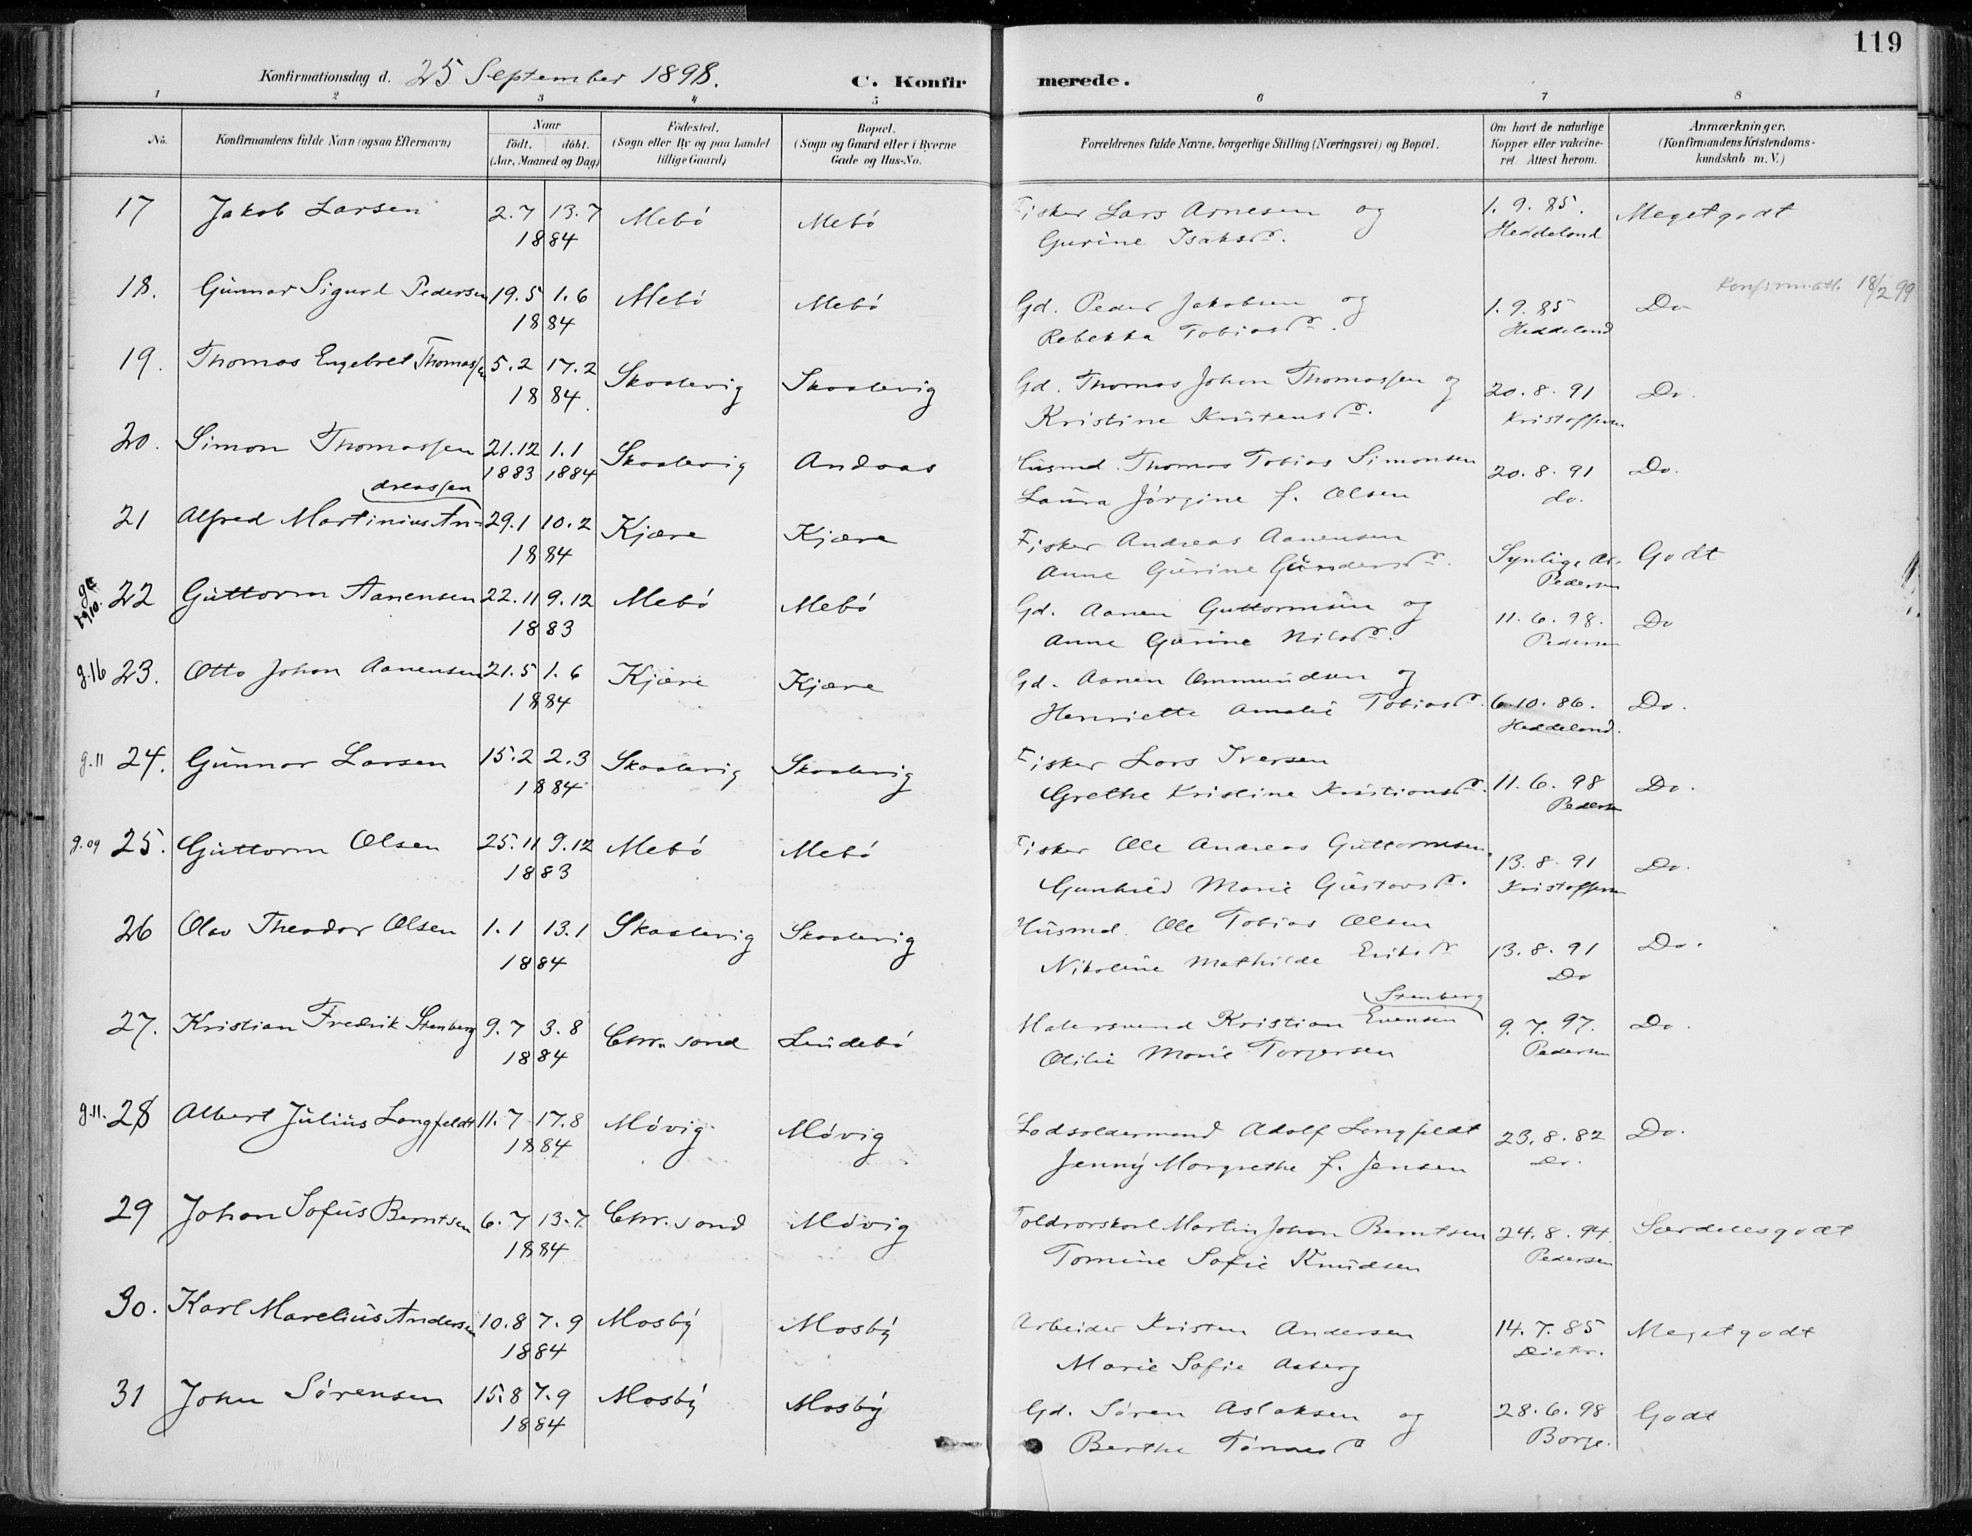 119
Konfirmationsdag d. 25 September 1898. C. Konfirmerede.
1 2 3 4 5 6 7 8
No. Konfirmandens fulde Navn (ogsaa Efternavn) Naar født. døbt. (Aar, Maaned og Dag) Fødested. (Sogn eller By og paa Landet tillige Gaard) Bopæl. (Sogn og Gaard eller i Byerne Gade og Hus-No. Forældrenes fulde Navne, borgerlige Stilling (Næringsvei) og Bopæl. Om havt de naturlige Kopper eller vakcineret. Attest herom. Anmærkninger. (Konfirmandens Kristendomskundskab m. V.)
17 Jakob Larsen 2.7 13.7 Mebø Mebø Fisker Lars Arnesen og 1.9.85. Megetgodt
1884 Gurine Isaksdr. Heddeland
Konfirmatt. 18/2 99
18. Gunnar Sigurd Pedersen 19.5 1.6 Mebø Mebø Gd. Peder Jakobsen og 1.9.85 Do
1884 Rebekka Tobiasdr. Heddeland
19. Thomas Engebret Thomassen 5.2 17.2 Skaalevig Skaalevig Gd. Thomas Johan Thomassen og 20.8.91 Do.
1884. Kristine Knutensdr. Kristoffersen
20. Simon Thomassen 21.12 1.1 Skaalevig Andaas Husmd. Thomas Tobias Simonsen 20.8.91 Do.
1883 1884 Laura Jørgine f. Olsen do.
dreassen
21 Alfred Martinius An- 29.1 10.2 Kjære Kjære Fisker Andreas Aanensen Synlige, At. Godt
1884 Anne Gurine Gundersdr. Pedersen
g 1910. 22 Guttorm Aanensen 22.11 9.12 Mebø Mebø Gd. Aanen Guttormsen og 11.6.98. Do
1883 Anne Gurine Nilsdr. Pedersen
g.16 23. Otto Johan Aanensen 21.5 1.6 Kjære Kjære Gd. Aanen Ommundsen og 6.10.86. Do.
1884 Henriette Amalie Tobiasdr. Heddeland.
g.11 24. Gunnar Larsen 15.2 2.3 Skaalevig Skaalevig Fisker Lars Iversen 11.6.98 Do.
1884 Grethe Kristine Kristiansdr. Pedersen
g.09 25. Guttorm Olsen 25.11 9.12 Mebø Mebø Fisker Ole Andreas Guttormsen 13.8.91 Do.
1883 Gunhild Marie Gustavsdr. Kristoffersen
26 Olav Theodor Olsen 1.1 13.1 Skaalevig Skaalevig Husmd. Ole Tobias Olsen 13.8.91 Do.
1884 Nikoline Mathilde Eriksdr Do
Stenberg
27. Kristian Fredrik Stenberg 9.7 3.8 Chr.sand Lindebø Malersvend Kristian Evensen 9.7.97. Do.
1884 Otilie Marie Torgersen Pedersen
g.11. 28 Albert Julius Langfeldt 11.7 17.8 Møvig Møvig Lodsoldermand Adolf Langfeldt 23.8.82 Do.
1884 Jenny Margrethe f. Jensen Do.
29 Johan Sofus Berntsen 6.7 13.7 Chr.sand Møvig Toldrorskarl Martin Johan Berntsen 24.8.94 Særdelesgodt
1884 Tomine Sofie Knudsen Pedersen
30. Karl Marelius Andersen 10.8 7.9 Mosby Mosby Arbeider Kristen Andersen 14.7.85 Megetgodt
1884 Marie Sofie Aaberg
31 John Sørensen 15.8 7.9 Mosby Mosby Gd. Søren Aslaksen og 28.6.98 Godt
1884 Berthe Tønnesdr Borge.